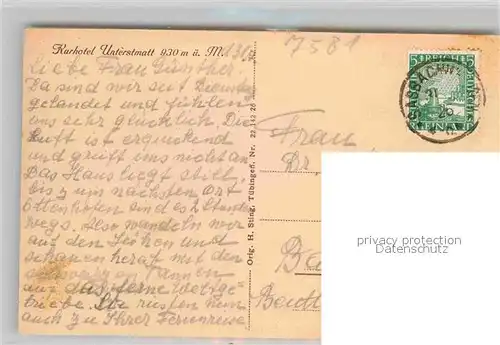 Kurhotel Unterstmatt 930 m ü. M.
7581
Liebe Frau Günther.
Da sind wir seit Dienstag
gelandet und fühlen
uns sehr glücklich. Die
Luft ist erquickend
und greift uns nicht an
Das Haus liegt still,
bis zum nächsten Ort
Ottenhöfen sind es 2 Stunden
wegs. Also wandeln wir
auf den Höhen und
schauen herab mit den
schwarzen Tannen
auf das ferne Weltge-
triebe. Sie rüsten nun
auch zu Ihrer Ferienreise
Orig. H. Sting, Tübingen. Nr. 22 142 26
Frau
Dr.
5 DEUTSCHES REICH 5
privacy protection
Datenschutz